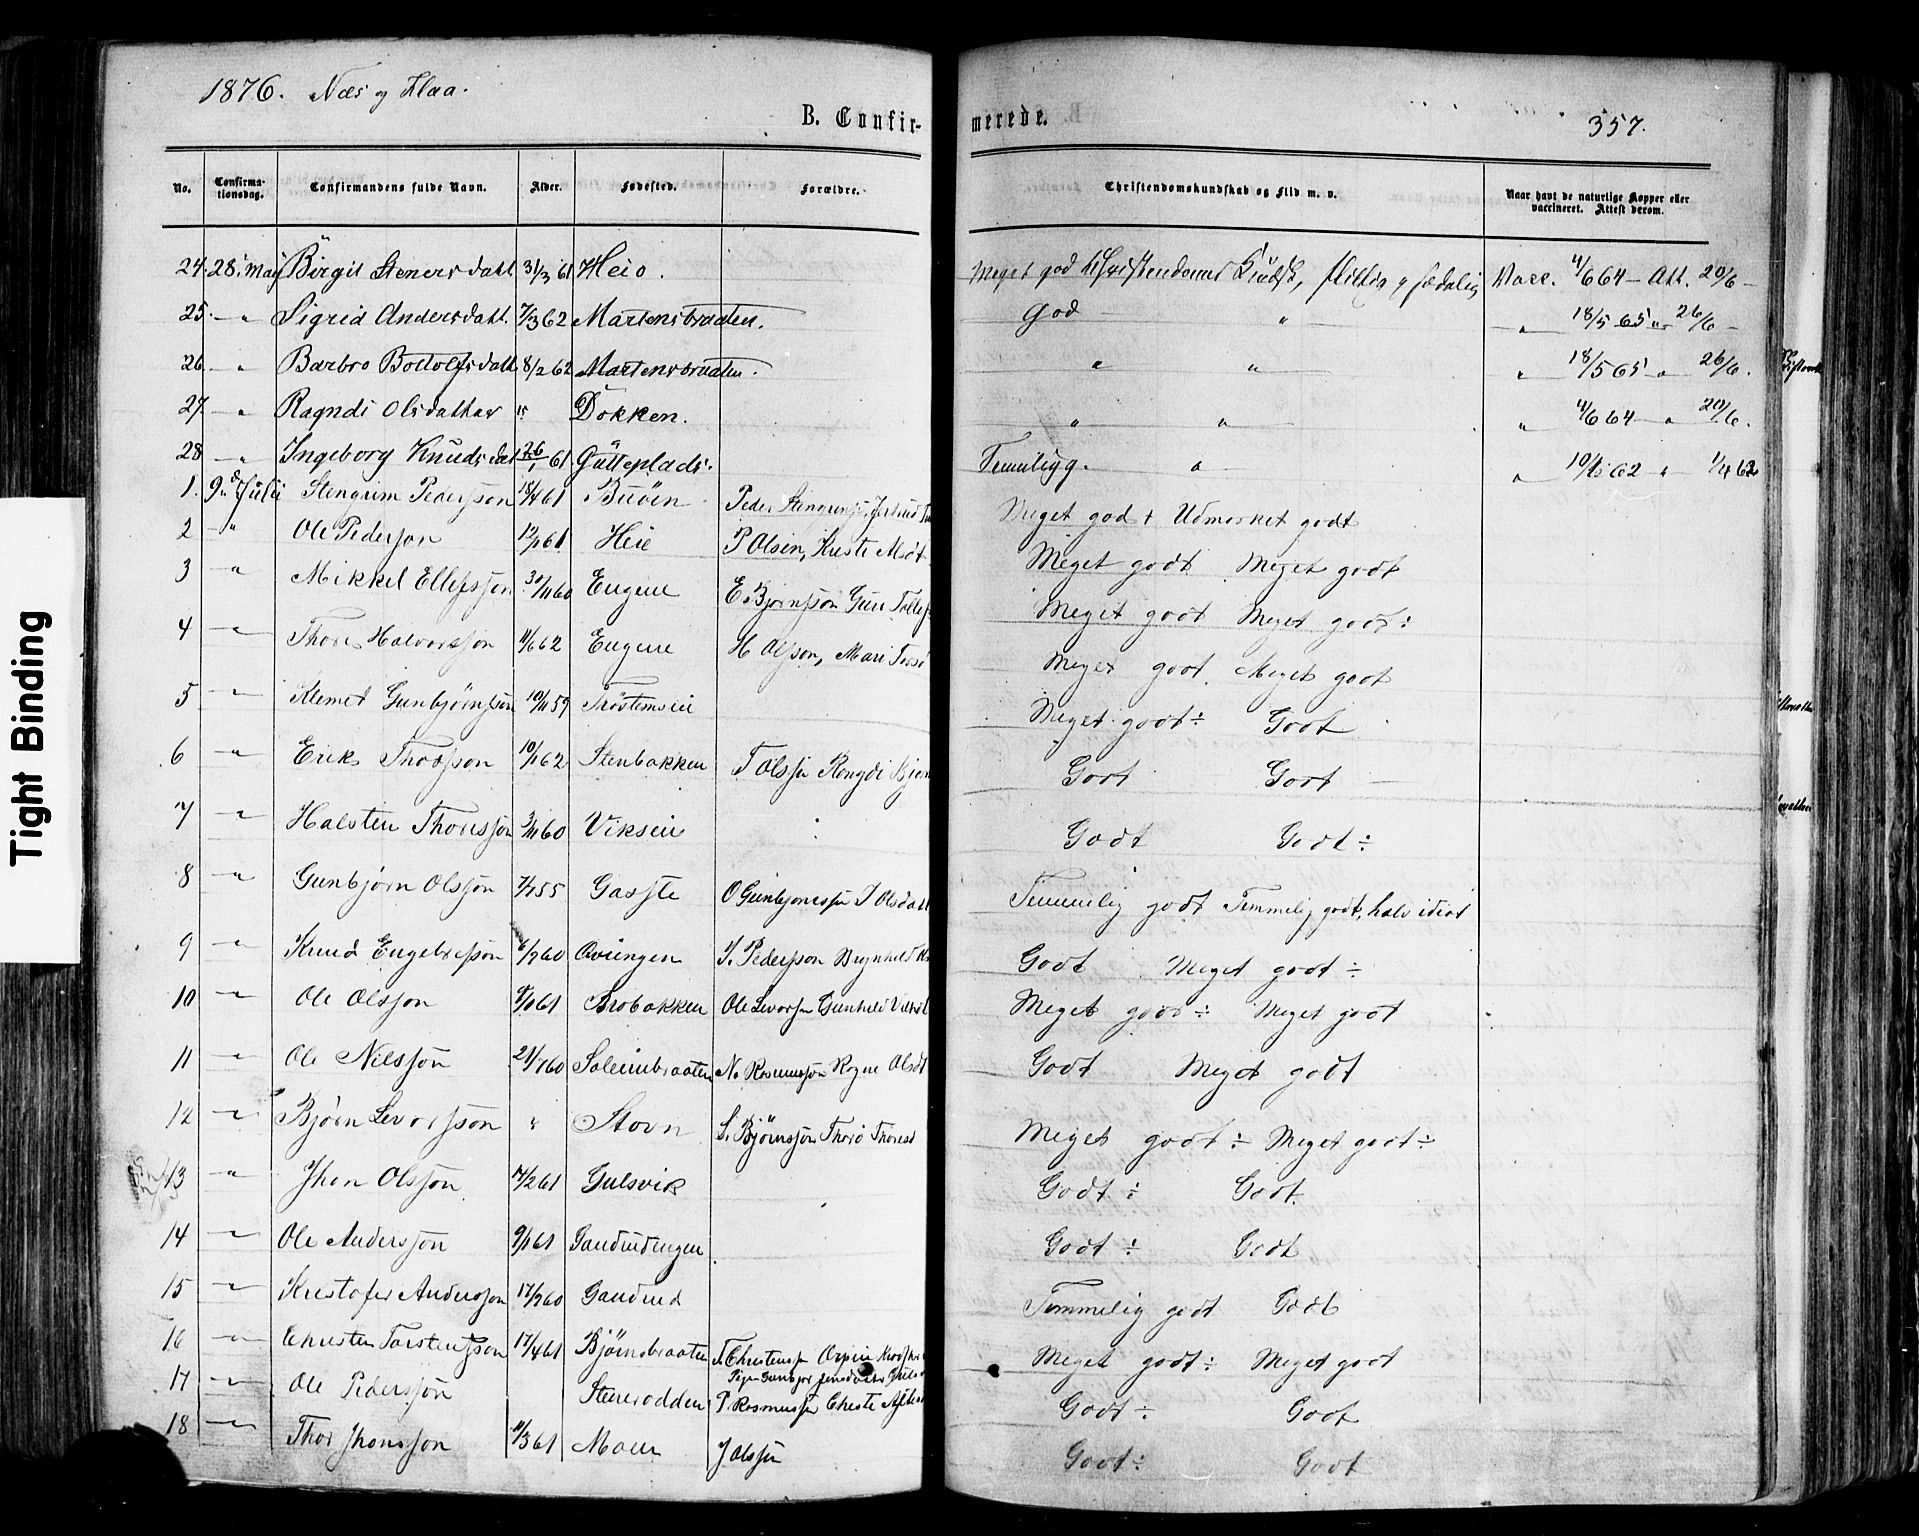 1876. Næs og Flaa.
B. Confir-
merede.
357.
No. Confirma-tionsdag. Confirmandens fulde Navn. Alder. Fødested. Forældre. Christendomskundskab og Flid m. v. Naar havt de naturlige Kopper eller vaccineret. Attest derom.
24. 28. Maj Birgit Stenersdatt. 31/3 61 Heio. Meget god Christendoms Kundsk, flittig og sædelig Vacc. 4/6 64 - Att. 20/6 -
25. " Sigrid Andersdatt. 7/3 62 Martensbraaten. God " " 18/5 65 " 26/6 -
26. " Barbro Bottolfsdatt 8/2 62 Martensbraaten. " " " 18/5 65 " 26/6.
27. " Ragndi Olsdatter " Dokken. " " " 4/6 64 - " 20/6.
28. " Ingeborg Knudsdat 26/1 61 Gutteplads. Temeligg. " " 10/6 62 " 1/4 62
1. 9de Juli Stengrim Pedersson 18/4 61 Buøen Peder Stengrims, Jertrud Meget god + Udmerket godt
2 " Ole Pederson 12/1 61 Heie P Olsen, Kirsti Meget godt Meget godt
3 " Mikkel Ellefsson 30/11 60 Eugene E Bjørnsson Guri Tollef Meget godt Meget godt ÷
4 " Thore Halvorsson 11/6 62 Eugene H Olsson, Mari Meget godt. Meget godt
5 " Klemet Gunbjørnsson 10/11 59 Trøstemseie Meget godt ÷ Godt
6 " Erik Thorsson 10/1 62 Stenbakken T Olssn Rongdi Bjørn Godt Godt
7 " Halsten Thoresson 3/11 60 Vikseie Godt Godt ÷
8 " Gunbjørn Olsson 7/7 55 Gasste O Gunbjørnssn I Olsdatt Temmelig godt Temmelig godt, halv idiot
9 " Knud Engebretsson 6/9 60 Qviengen Pedersson Brynhild Godt Meget godt ÷
10 " Ole Olsson 8/1 61 Brobakken Ole Levorsn Gunhild Meget godt ÷ Meget godt
11 " Ole Nilsson 21/7 60 Soleimbraaten N. Rasmusson Rogne Olsdt Godt Meget godt
12 " Bjørn Levorsson " Stovn L. Bjørnsson Thoresd Meget godt ÷ Meget godt ÷
13 " Jhon Olsson 14/2 61 Gulsvik Godt ÷ Godt
14 " Ole Andersson 9/1 61 Gandrudengen Godt ÷ Godt
15 " Kristofer Andersson 17/9 60 Gandrud Temmelig godt Godt
16 " Christen Torstensson 17/4 61 Bjørnsbraaten T. Christenssn Meget godt ÷ Meget godt
17 " Ole Pedersson Stenerodden P Rasmussn Cherste Godt ÷ Godt
18 " Thor Jhonsson 11/3 61 Moen J Olssn Godt ÷ Godt
Tight Binding